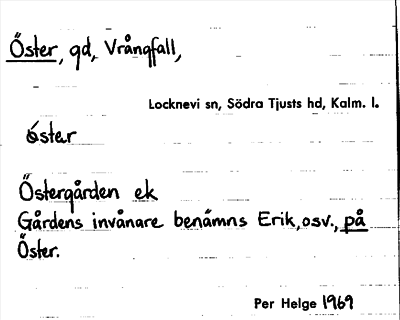 Öster, gd, Vrångfall,
Locknevi sn, Södra Tjusts hd, Kalm. l.
öster
Östergården ek
Gårdens invånare benämns Erik, osv., på
Öster.
Per Helge 1969